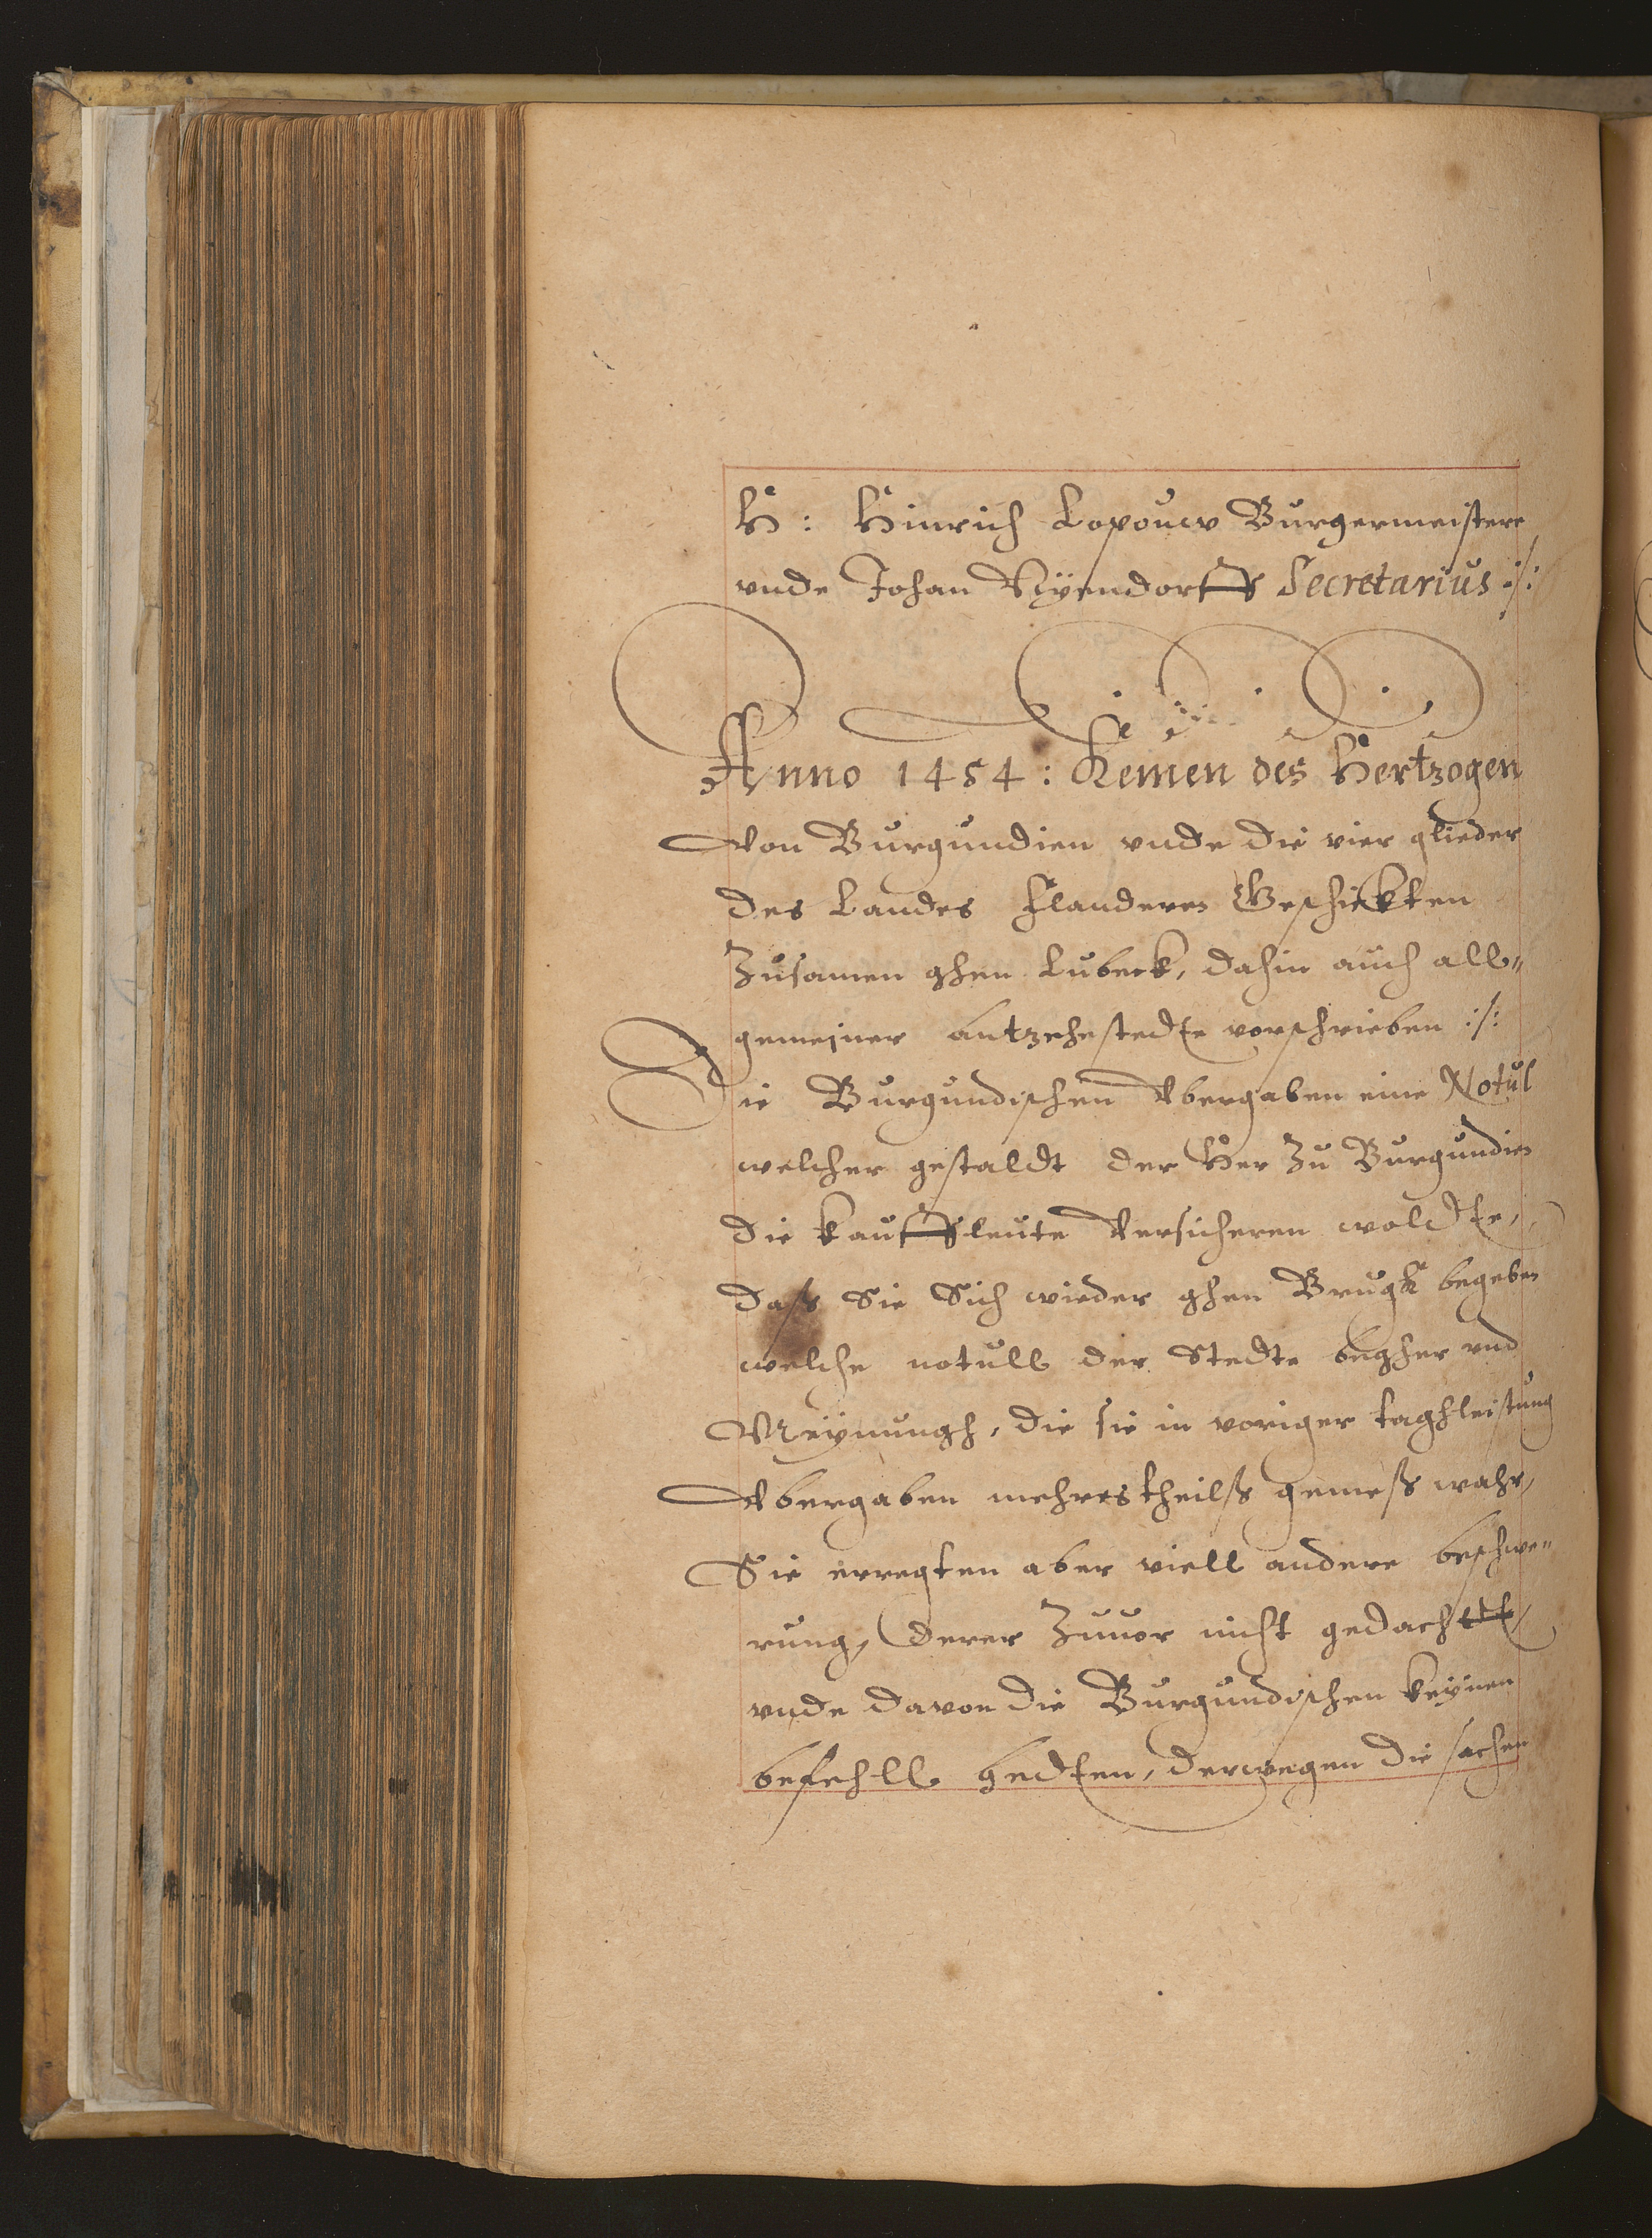 H: Hinrich Lopouw Burgermeistere
vnde Johan Nÿendorff Secretarius :/:
Anno 1454: Kemen des Hertzogen
Von Burgundien vnde die vier glieder
des Landes Flanderen Geschickten
Zusamen ghen Lubeck, dahin auch all„
gemeiner antzehestedte vorschrieben :/:
Die Burgundischen Vbergaben eine Notul
welcher gestaldt der Her Zu Burgundien
die kauffleute Versicheren woldte,
dass Sie Sich wieder ghen Brugk begeben
welche notull der Stedte begher vnd
Meÿnungh, die sie in voriger taghleistung
Vbergaben mehrestheilss gemess wahr,
Sie erregten aber viell andere beschwe„
rung, derer Zuuor nicht gedachtt
vnde davon die Burgundischen keÿnen
befehll hedten, derwegen die sachen